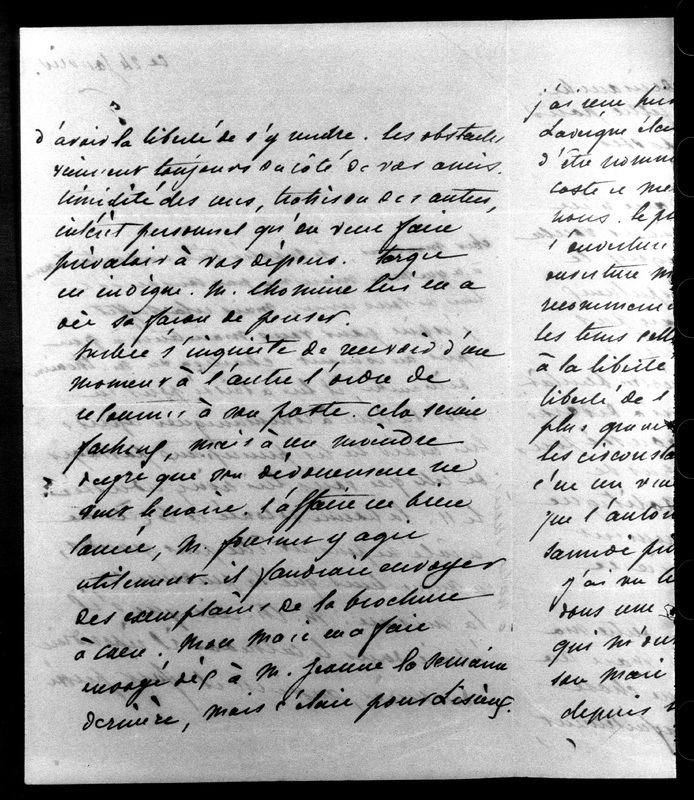 d'avoir la liberté de s'y rendre. les obstacles
viennent toujours du côté de vos amis.
timidité des uns, trahison des autres,
intérêt personnel qu'on veut faire
prévaloir à vos dépens.
en indigne. M. Lhomme lui en a
dit sa façon de penser.
s'inquiète de recevoir d'un
moment à l'autre l'ordre de
retourner à son poste. cela serait
fâcheux, mais à un moindre
degré que son dévouement ne
veut le croire. l'affaire est bien
lancée, M. y agit
utilement. il faudrait envoyer
des exemplaires de la brochure
à Caen. mon mari en a fait
envoyé dix à M. Jeanne la semaine
dernière, mais c'était pour Lisieux.
j'ai
d'être nomm
nous. le p
s'ouvertur
ouverture m
recommen
les tems
à la liberté
liberté de l
plus
les circonsta
c'est un
que l'auto
samedi
j'ai vu l
dans une
qui m'ont
son mari
depuis
ce 24 janvier.